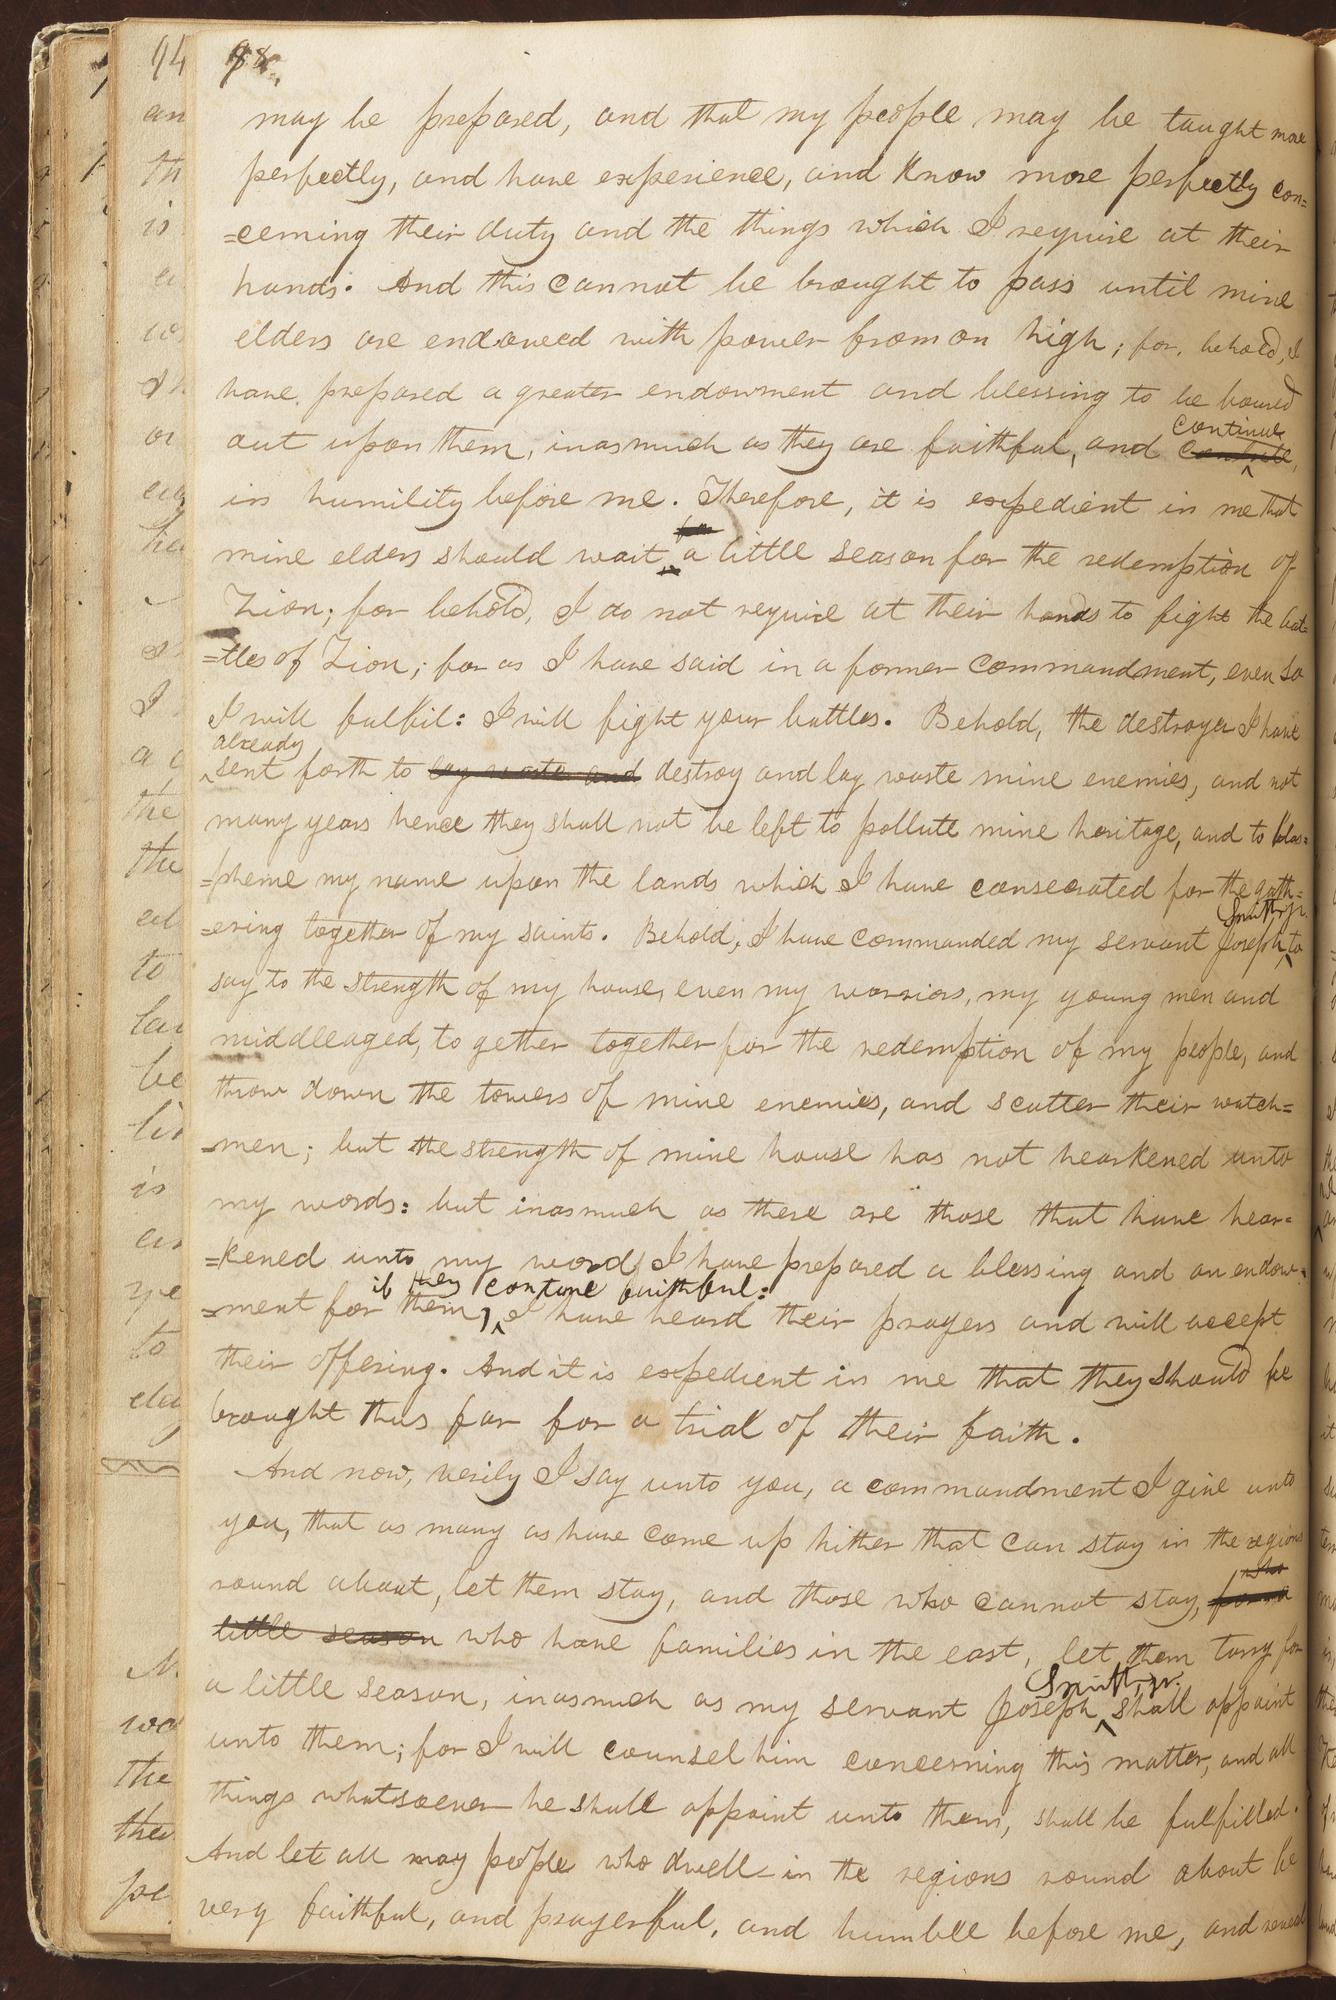 98.
may be prepared, and that my people may be taught more
perfectly, and have experience, and know more perfectly con=
=cerning their duty and the things which I require at their
hands. And this cannot be brought to pass until mine
elders are endowed with power from on high; for, behold, I
have prepared a greater endowment and blessing to be poured
out upon them, inasmuch as they are faithful, and continue
in humility before me. Therefore, it is expedient in me that
mine elders should wait for a little season for the redemption of
Zion; for behold, I do not require at their hands to fight the bat=
=tles of Zion; for as I have said in a former commandment, even so
I will fulfil: I will fight your battles. Behold, the destroyer I have
already
sent forth to lay waste and destroy and lay waste mine enemies, and not
many years hence they shall not be left to pollute mine heritage, and to blas=
=pheme my name upon the lands which I have consecrated for the gath=
=ering together of my saints. Behold, I have commanded my servant Joseph Smith, jr. to
say to the strength of my house, even my warriors, my young men and
middleaged, to gether together for the redemption of my people, and
throw down the towers of mine enemies, and scatter their watch=
=men; but the strength of mine house has not hearkened unto
my words: but inasmuch as there are those that have hear=
=kened unto my word, I have prepared a blessing and an endow=
if they contune faithful:
=ment for them, I have heard their prayers and will accept
their offering. And it is expedient in me that they should be
brought thus far for a trial of their faith.
And now, verily I say unto you, a commandment I give unto
you, that as many as have come up hither that can stay in the regions
round about, let them stay, and those who cannot stay, who for a
little season who have families in the east, let them tarry for
a little season, inasmuch as my servant Joseph Smith, jr. shall appoint
unto them; for I will counsel him concerning this matter, and all
things whatsoever he shall appoint unto them, shall be fulfilled.
And let all may people who dwell in the regions round about be
very faithful, and prayerful, and humble before me, and reveal